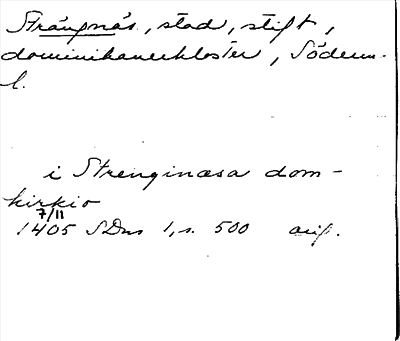 Strängnäs, stad, stift,
dominikanerkloster, Söderm.
l.
i Strenginæsa dom-
kirkio
7/11
1405 SDns 1, s. 500 orig.